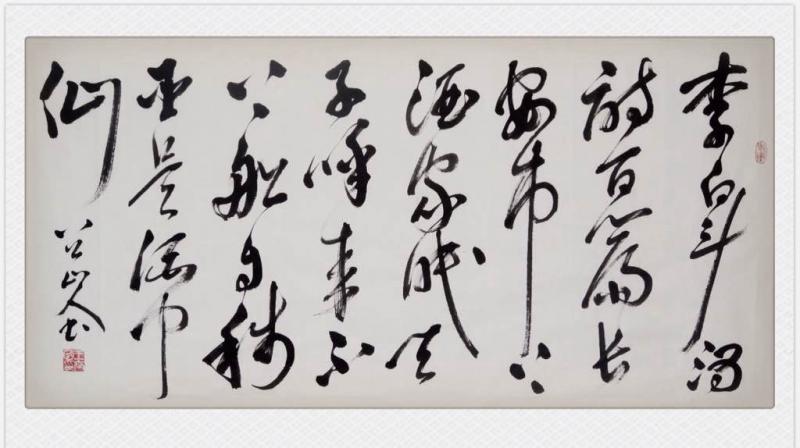 李白斗酒
诗百篇长
安市上
酒家眠天
子呼来不
上船自称
臣是酒中
仙
山人书